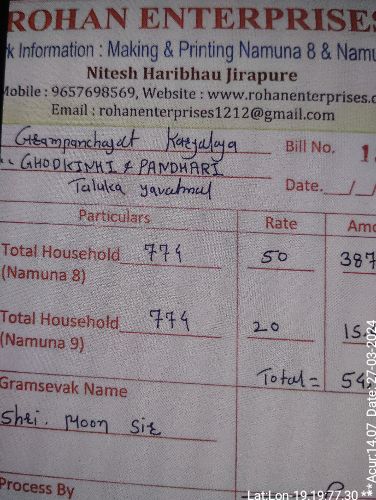 ROHAN ENTERPRISES
k Information : Making & Printing Namuna 8 & Namu
Nitesh Haribhau Jirapure
Mobile : 9657698569, Website : www.rohanenterprises.c
Email : rohanenterprises1212@gmail.com
Grampanchayat Karyalaya Bill No. 1
GHODKINHI & PANDHARI
Taluka yavatmal Date.__/__/
Particulars Rate Amo
Total Household 774 50 387
(Namuna 8)
Total Household 774 20 15
(Namuna 9)
Total = 54
Gramsevak Name
Shri. Moon Sir
Process By
Lat:Lon-19.19:77.30 ***Acur:14.07 Date: 27-03-2024